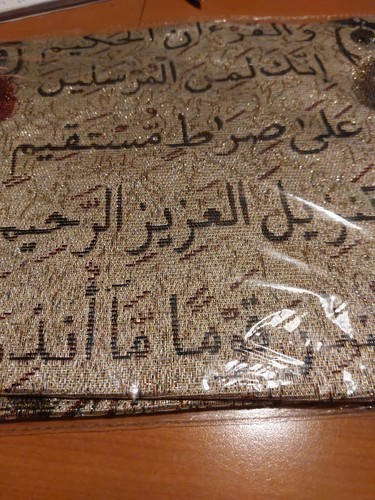 والقرءان الحكيم
إنك لمن المرسلين
على صراط مستقيم
تنزيل العزيز الرحيم
قومًا مَّآ أُنذر